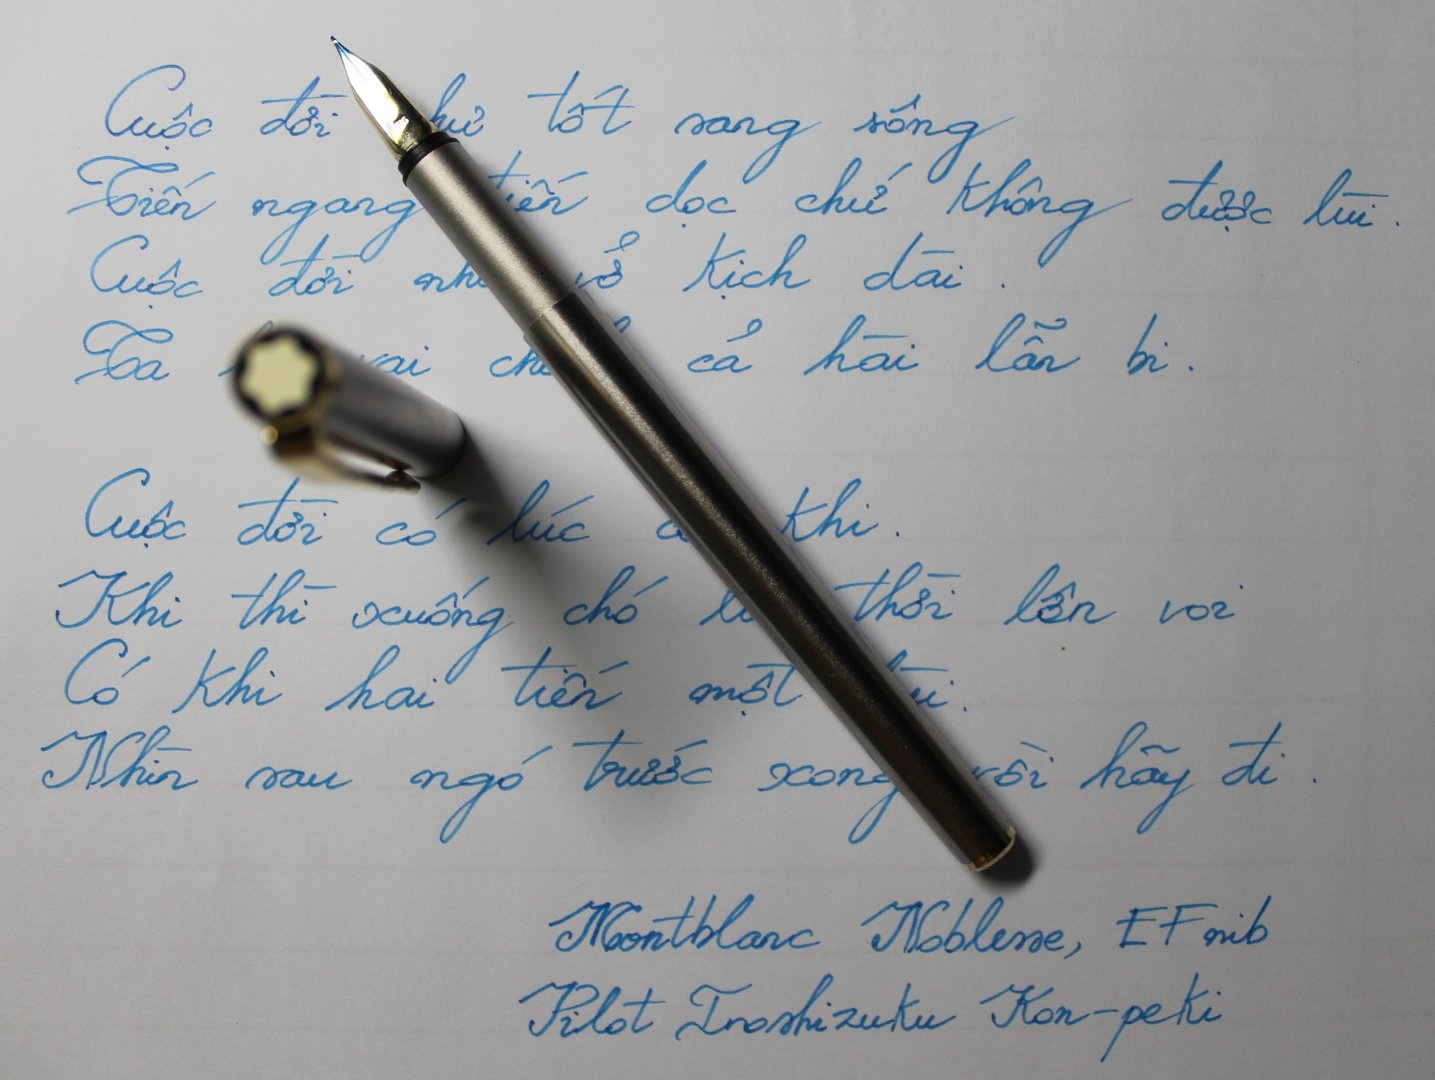 Cuộc đời tốt sang sống
Tiến ngang tiến dọc chứ không được lùi.
Cuộc đời như vở kịch dài.
Ta vai cả hài lẫn bi.
Cuộc đời có lúc khi.
Khi thì xuống chó thời lên voi
Có khi hai tiến một lùi.
Nhìn sau ngó trước xong rồi hãy đi.
Montblanc Noblesse, EF nib
Pilot Iroshizuku Kon-peki